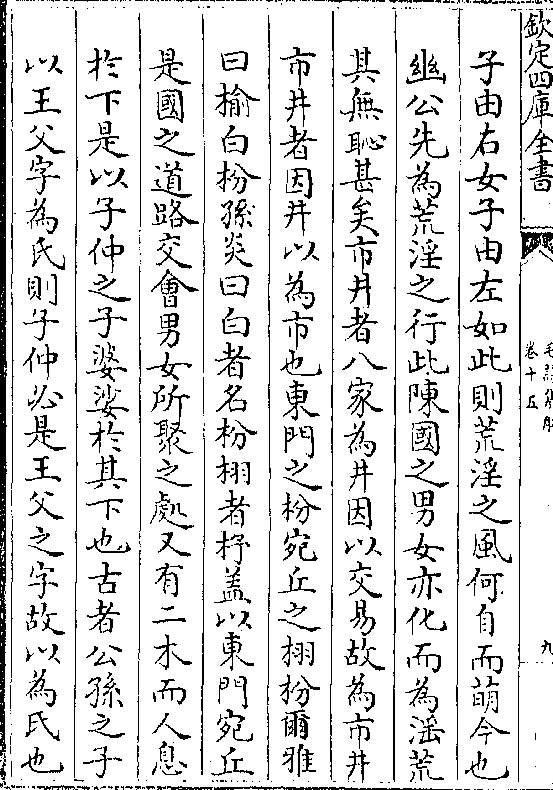 欽定四庫全書
毛詩集解
卷十五
九
子由右女子由左如此則荒淫之風何自而萌今也
幽公先為荒淫之行此陳國之男女亦化而為滛荒
其無恥甚矣市井者八家為井因以交易故為市井
市井者因井以為市也東門之枌宛丘之栩枌爾雅
曰榆白枌孫炎曰白者名枌栩者杼葢以東門宛丘
是國之道路交會男女所聚之處又有二木而人息
於下是以子仲之子婆娑於其下也古者公孫之子
以王父字為氏則子仲必是王父之字故以為氏也